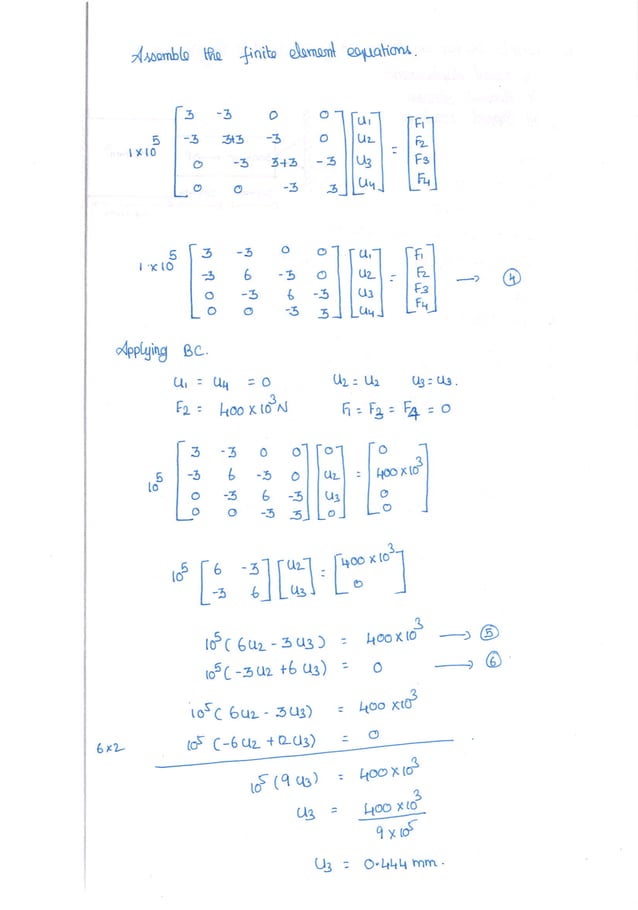 Assemble the finite element equations.
1 × 10^5 [3 -3 0 0; -3 3+3 -3 0; 0 -3 3+3 -3; 0 0 -3 3] [u1; u2; u3; u4] = [F1; F2; F3; F4]
1 × 10^5 [3 -3 0 0; -3 6 -3 0; 0 -3 6 -3; 0 0 -3 3] [u1; u2; u3; u4] = [F1; F2; F3; F4] → ④
Applying BC.
u1 = u4 = 0 u2 = u2 u3 = u3.
F2 = 400 × 10^3 N F1 = F3 = F4 = 0
10^5 [3 -3 0 0; -3 6 -3 0; 0 -3 6 -3; 0 0 -3 3] [0; u2; u3; 0] = [0; 400 × 10^3; 0; 0]
10^5 [6 -3; -3 6] [u2; u3] = [400 × 10^3; 0]
10^5 (6u2 - 3u3) = 400 × 10^3 → ⑤
10^5 (-3u2 + 6u3) = 0 → ⑥
10^5 (6u2 - 3u3) = 400 × 10^3
6 × 2 10^5 (-6u2 + 12u3) = 0
10^5 (9u3) = 400 × 10^3
u3 = 400 × 10^3 / 9 × 10^5
u3 = 0.444 mm.